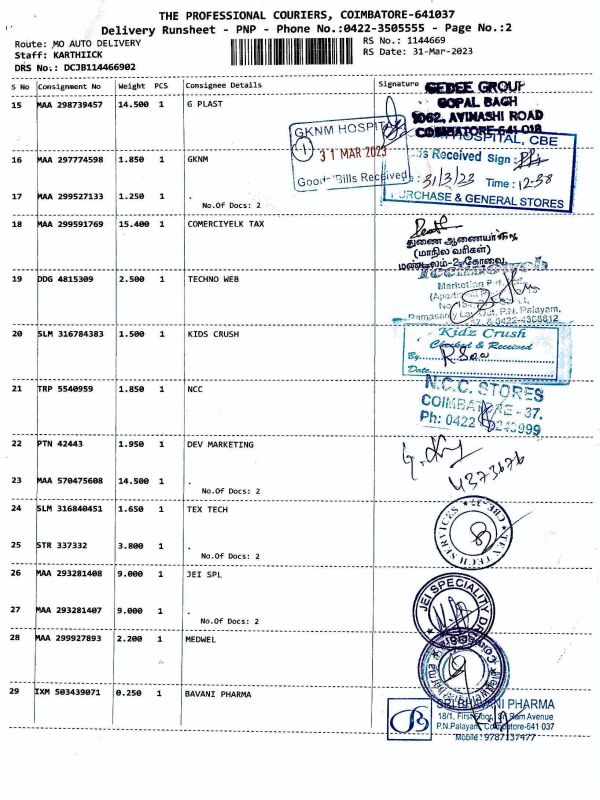 THE PROFESSIONAL COURIERS, COIMBATORE-641037
Delivery Runsheet - PNP - Phone No.:0422-3505555 - Page No.:2
Route: MO AUTO DELIVERY
RS No.: 1144669
Staff: KARTHIICK
RS Date: 31-Mar-2023
DRS No.: DCJB114466902
S No Consignment No Weight PCS Consignee Details Signature
15 MAA 298739457 14.500 1 G PLAST
GEDEE GROUP
GOPAL BAGH
1062, AVINASHI ROAD
COIMBATORE-641 018
16 MAA 297774598 1.850 1 GKNM
GKNM HOSPITAL
31 MAR 2023
Goods/Bills Received
HOSPITAL, CBE
Received Sign :
31/3/23 Time : 12-38
PURCHASE & GENERAL STORES
17 MAA 299527133 1.250 1 .
No.Of Docs: 2
18 MAA 299591769 15.400 1 COMERCIYELK TAX
துணை ஆணையர்
(மாநில வரிகள்)
மண்டலம்-2, கோவை
19 DDG 4815309 2.500 1 TECHNO WEB
Marketing
P.N. Palayam,
20 SLM 316784383 1.500 1 KIDS CRUSH
Kidz Crush
Checked & Received
By
Date
21 TRP 5540959 1.850 1 NCC
N.C.C. STORES
COIMBATORE - 37.
Ph: 0422
22 PTN 42443 1.950 1 DEV MARKETING
23 MAA 570475608 14.500 1 .
No.Of Docs: 2
24 SLM 316840451 1.650 1 TEX TECH
TEX TECH SERVICES * CBE-37 *
25 STR 337332 3.800 1 .
No.Of Docs: 2
26 MAA 293281408 9.000 1 JEI SPL
JEI SPECIALITY
27 MAA 293281407 9.000 1 .
No.Of Docs: 2
28 MAA 299927893 2.200 1 MEDWEL
29 IXM 503439071 0.250 1 BAVANI PHARMA
SRI BHAVANI PHARMA
18/1, First Floor, Sri Ram Avenue
P.N.Palayam, Coimbatore-641 037
Mobile : 9787137477